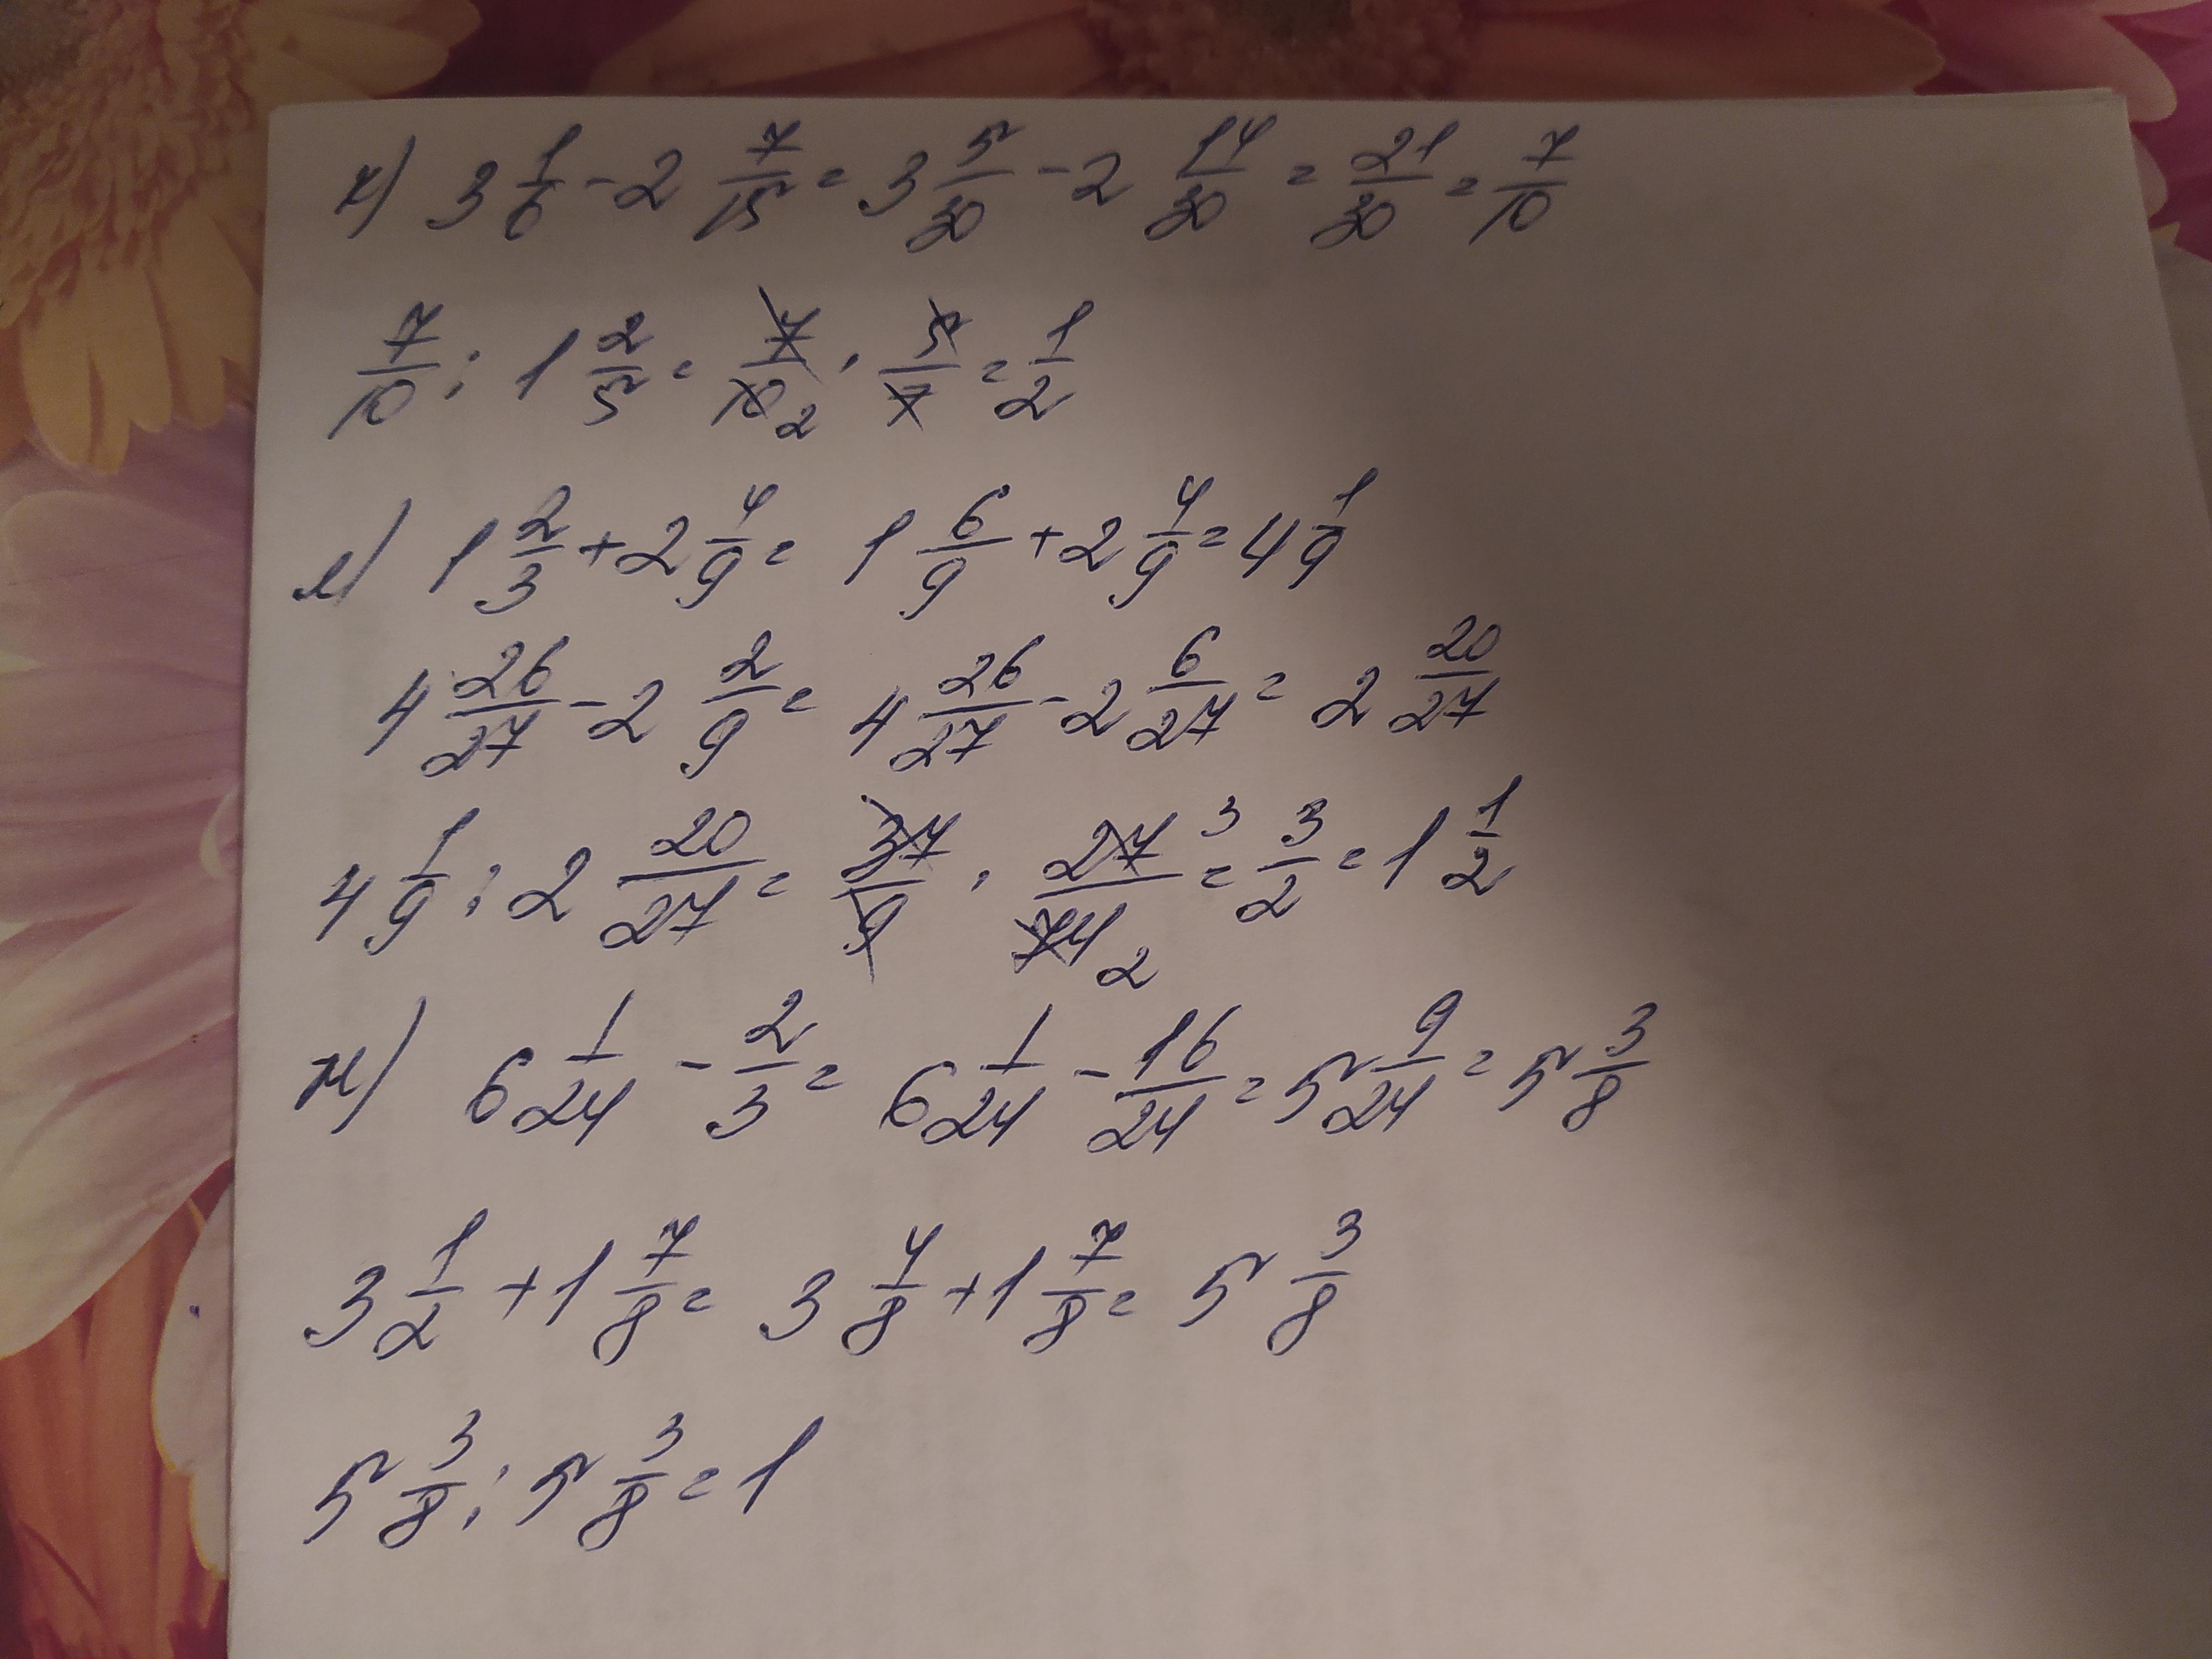 к) 3 1/6 - 2 7/15 = 3 5/30 - 2 14/30 = 21/30 = 7/10
7/10 : 1 2/5 = 7/10 2 · 5/7 = 1/2
л) 1 2/3 + 2 4/9 = 1 6/9 + 2 4/9 = 4 1/9
4 26/27 - 2 2/9 = 4 26/27 - 2 6/27 = 2 20/27
4 1/9 : 2 20/27 = 37/9 · 27 3/74 2 = 3/2 = 1 1/2
м) 6 1/24 - 2/3 = 6 1/24 - 16/24 = 5 9/24 = 5 3/8
3 1/2 + 1 7/8 = 3 4/8 + 1 7/8 = 5 3/8
5 3/8 : 5 3/8 = 1